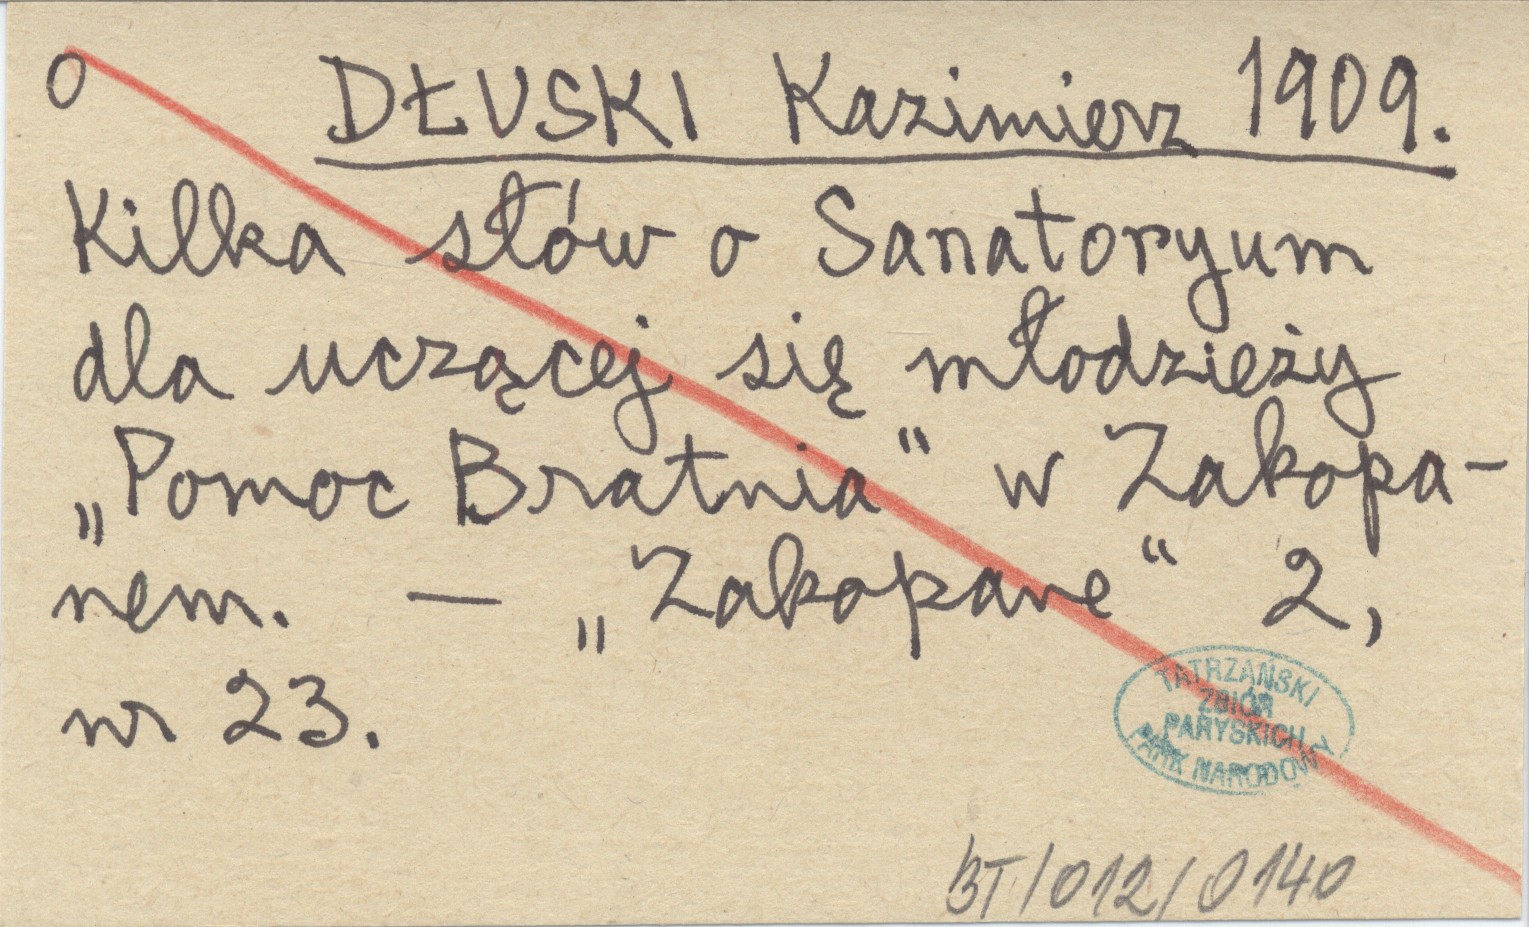 O DŁUSKI Kazimierz 1909.
Kilka słów o Sanatoryum
dla uczącej się młodzieży
„Pomoc Bratnia“ w Zakopa-
nem. — „Zakopane“ 2,
nr 23.
TATRZAŃSKI
ZBIÓR
PARYSKICH
PARK NARODOWY
BT/012/0140